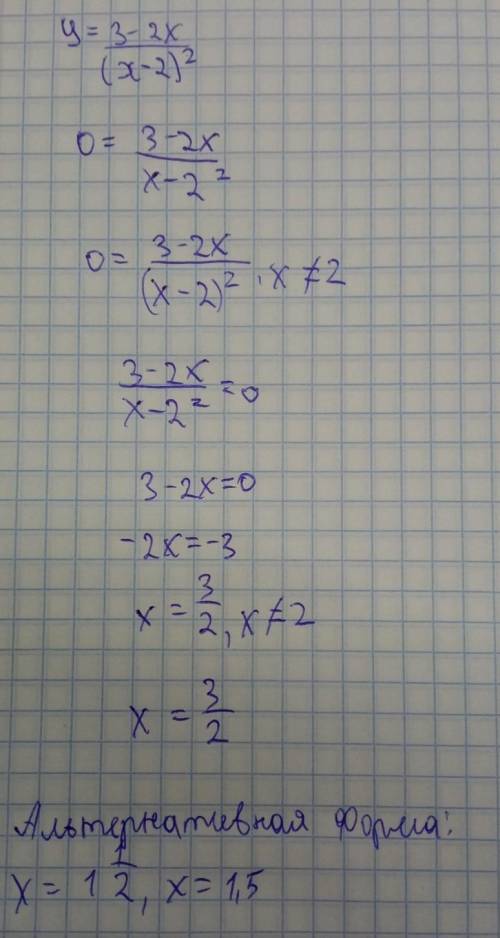 y = 3-2x / (x-2)²
0 = 3-2x / x-2²
0 = 3-2x / (x-2)² , x ≠ 2
3-2x / x-2² = 0
3-2x=0
-2x=-3
x = 3/2, x ≠ 2
x = 3/2
Альтернативная форма:
x = 1 1/2, x = 1,5